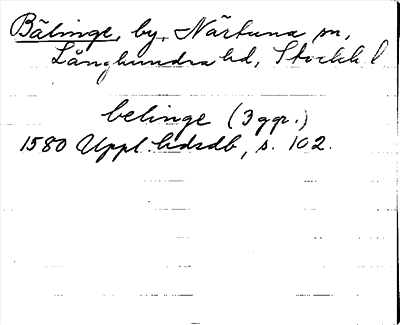 Bälinge, by, Närtuna sn,
Långhundra hd, Stockh. l
belinge (3 ggr.)
1580 Uppl. hdsdb, s. 102.